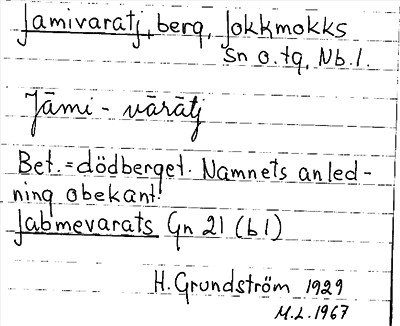 Jamivaratj, berg, Jokkmokks
sn o. tg, Nb. l.
Jāmi - vārātj
Bet. = dödberget. Namnets anled-
ning obekant.
Jabmevarats Gn 21 (b1)
H. Grundström 1929
M.L. 1967